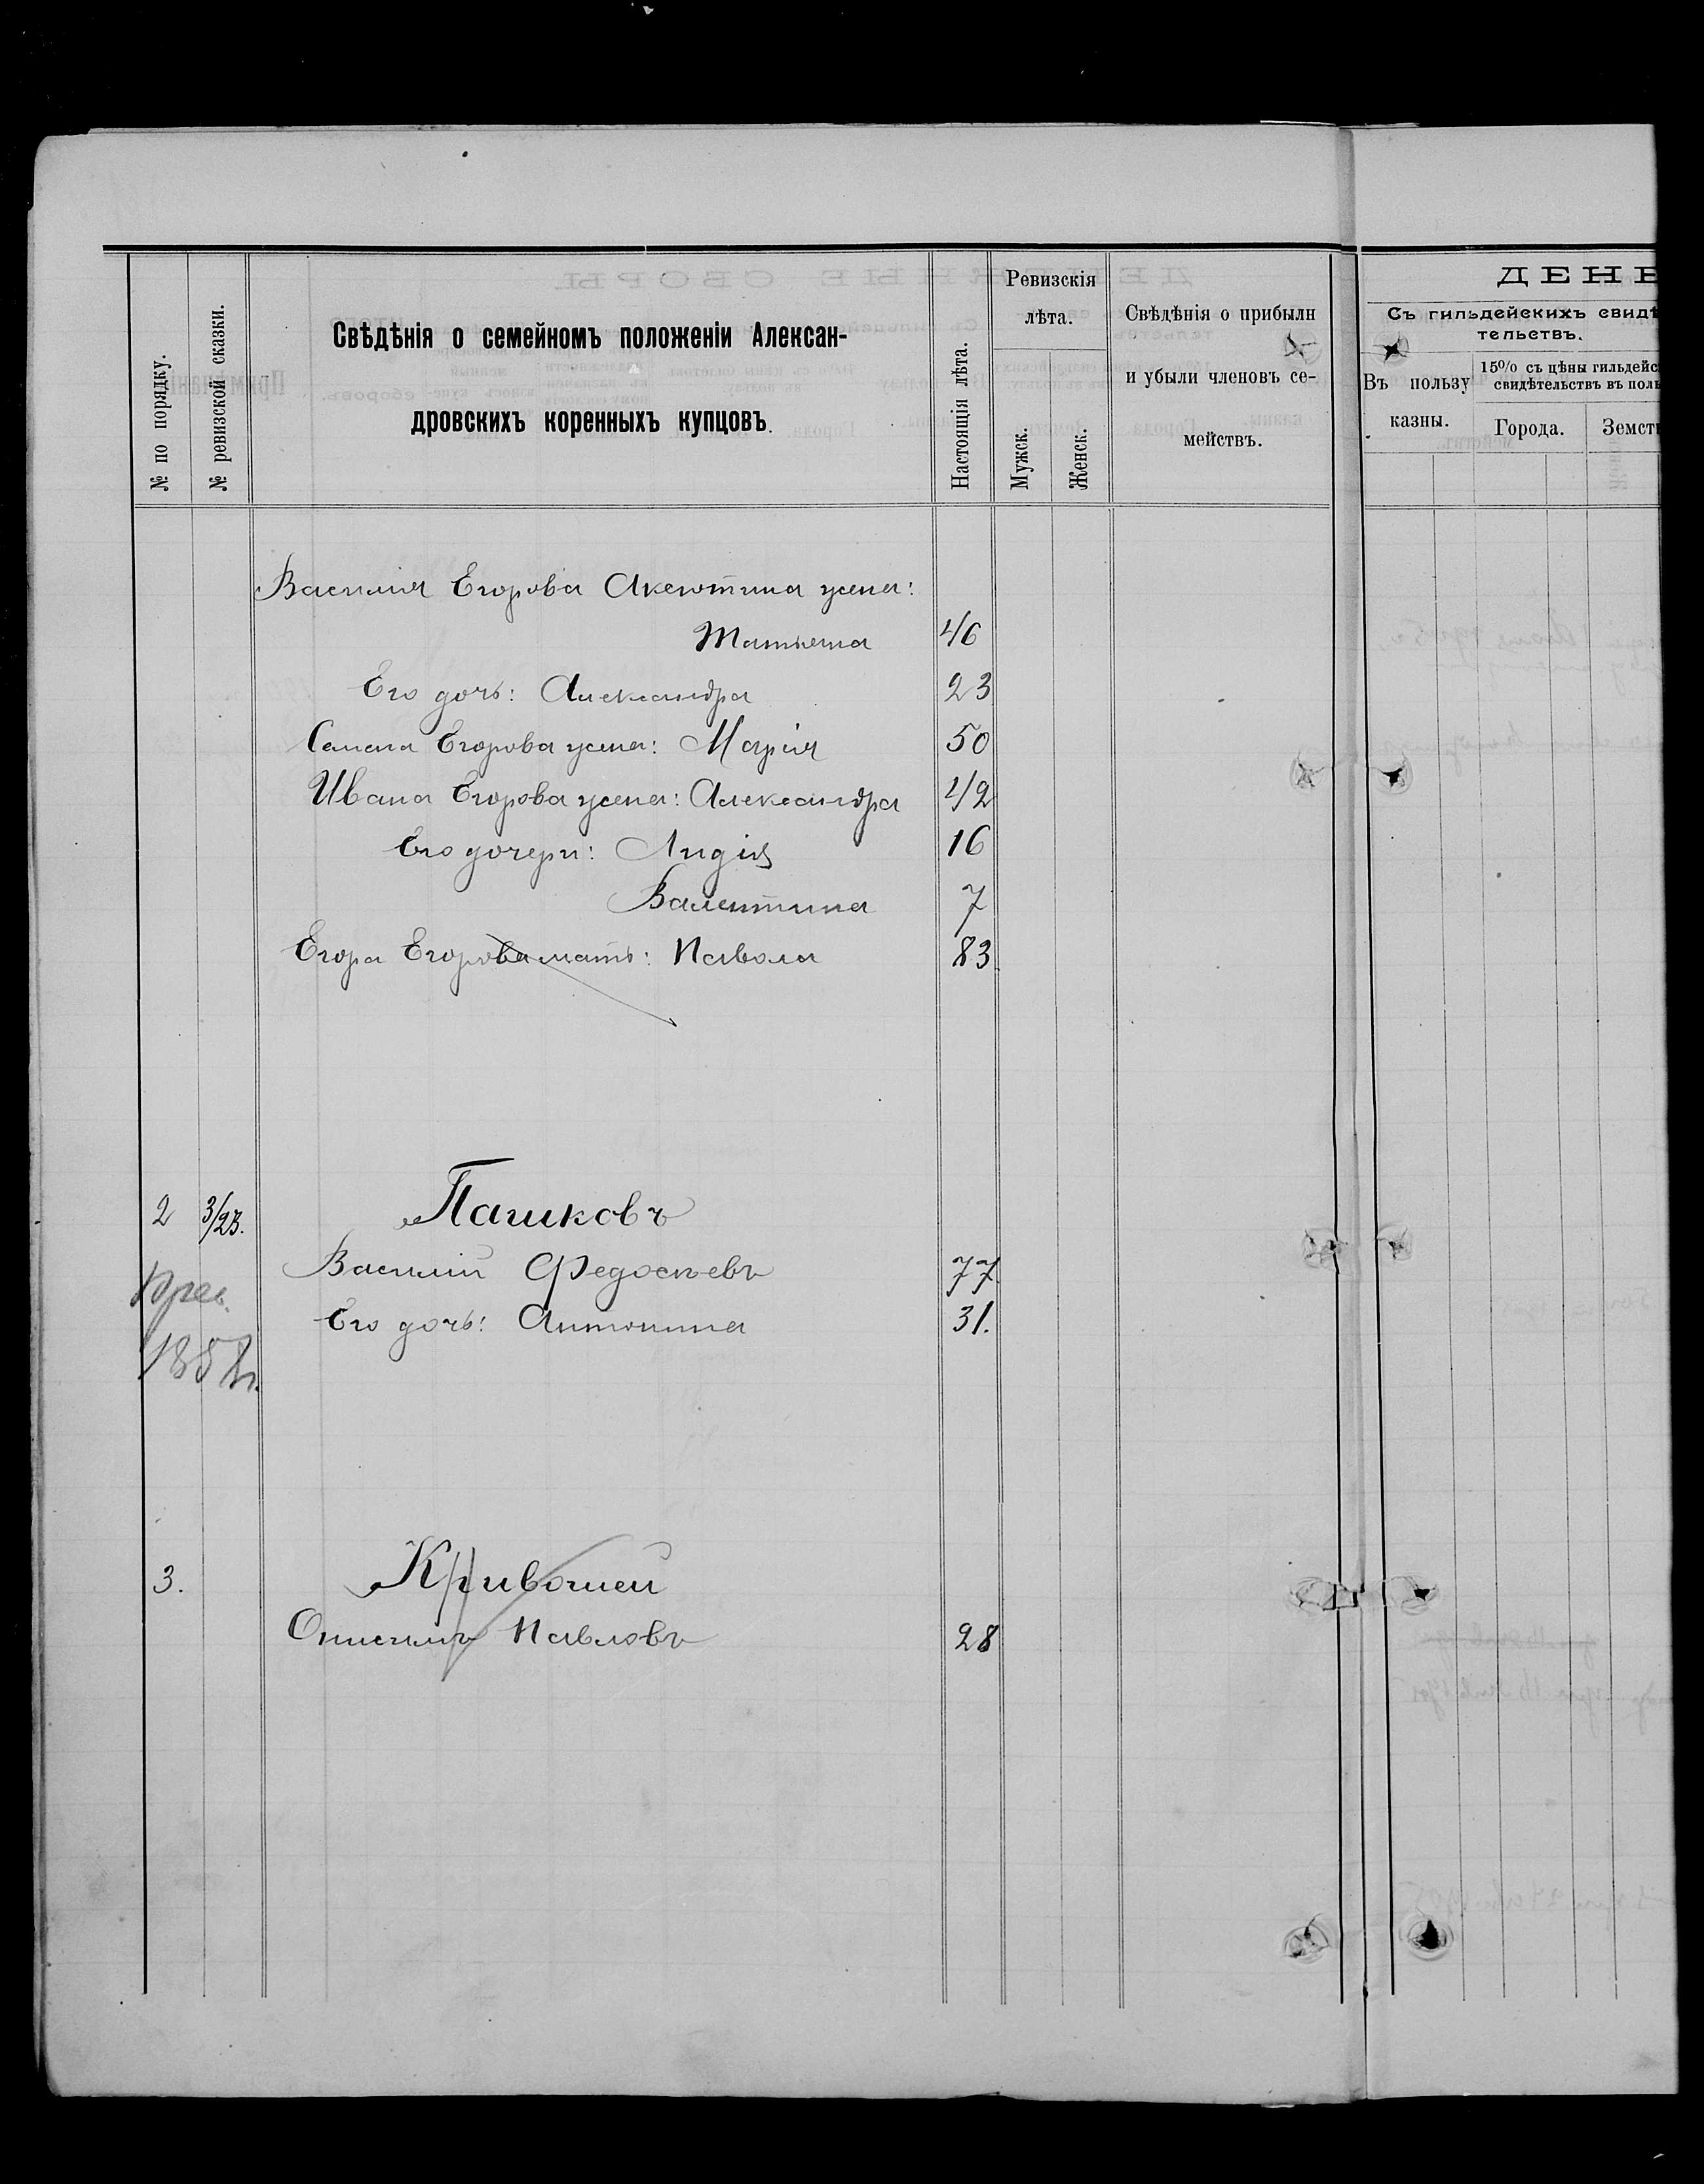 № по порядку.
№ ревизской сказки.
Свѣдѣнія о семейномъ положеніи Алексан-
дровскихъ коренныхъ купцовъ.
Настоящія лѣта.
Ревизскія
лѣта.
Мужск.
Женск.
Свѣдѣнія о прибыли
и убыли членовъ се-
мействъ.
ДЕНЕ
Съ гильдейскихъ свидѣ
тельствъ.
Въ пользу
казны.
15% съ цѣны гильдейс
свидѣтельствъ въ поль
Города.
Земст
Василія Егорова жена:
Татьяна 46
Его дочь: Александра 23
Егорова жена: Марія 50
Ивана Егорова жена: Александра 42
Его дочери: Лидія 16
Валентина 7
Егора Егорова мать: 83
2 3/23. Пашковъ
Василій Федосѣевъ 77
Его дочь: Антонина 31.
3. Кривошей
Онисимъ Павловъ 28